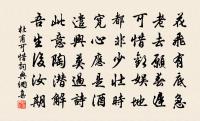 花飛有底急
老去願春遲
可惜歡娛地
都非少壯時
寬心應是酒
遣興莫過詩
此意陶潛解
吾生後汝期
杜甫可惜詞典網